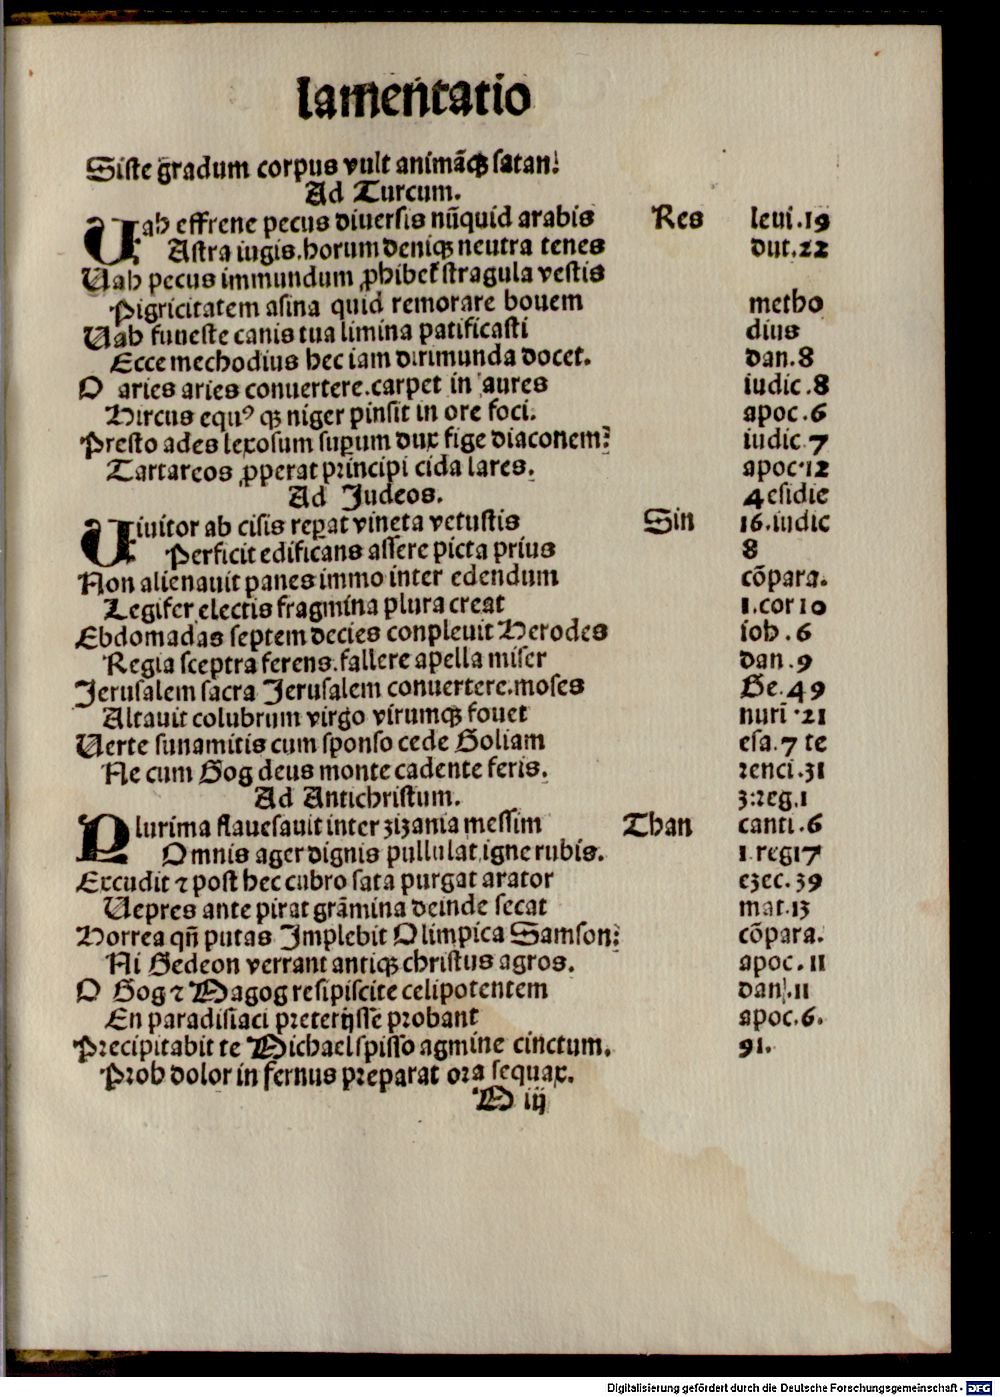 lamentatio
Siste gradum corpus vult animāqȝ satan!
Ad Turcum.
Uah effrene pecus diuersis nūquid arabis Res leui.19
Astra iugis.horum deniqȝ neutra tenes dut.22
Uah pecus immundum ꝓhibet stragula vestis
Pigricitatem asina quid remorare bouem metho
Uah funeste canis tua limina patificasti dius
Ecce mechodius hec iam dirimunda docet. dan.8
O aries aries conuertere.carpet in aures iudic.8
Hircus equꝰ qȝ niger pinsit in ore foci. apoc.6
Presto ades lexosum suꝑum dux fige diaconem? iudic.7
Tartareos ꝓperat principi cida lares. apoc.12
Ad Judeos. 4 esidie
Uiuitor ab cisis reꝑat vineta vetustis Sin 16.iudic
Perficit edificans assere picta prius 8
Non alienauit panes immo inter edendum cōpara.
Legifer electis fragmina plura creat 1.cor 10
Ebdomadas septem decies conpleuit Herodes iob.6
Regia sceptra ferens.fallere apella miser dan.9
Jerusalem sacra Jerusalem conuertere.moses Ge.49
Altauit colubrum virgo virumqȝ fouet nuri.21
Uerte sunamitis cum sponso cede Goliam esa.7 te
Ne cum Gog deus monte cadente feris. renci.31
Ad Antichristum. 3:reg.1
Plurima flauesauit inter zizania messim Than canti.6
Omnis ager dignis pullulat igne rubis. 1 reg17
Excudit ⁊ post hec cubro sata purgat arator ezec.39
Uepres ante pirat grāmina deinde secat mat.13
Horrea qn̄ putas Implebit Olimpica Samson? cōpara.
Ni Gedeon verrant antiqȝ christus agros. apoc.11
O Gog ⁊ Magog resipiscite celipotentem dan.11
En paradisiaci preterijsse probant apoc.6.
Precipitabit te Michael spisso agmine cinctum. 91.
Proh dolor in fernus preparat ora sequax.
M iij
Digitalisierung gefördert durch die Deutsche Forschungsgemeinschaft - DFG